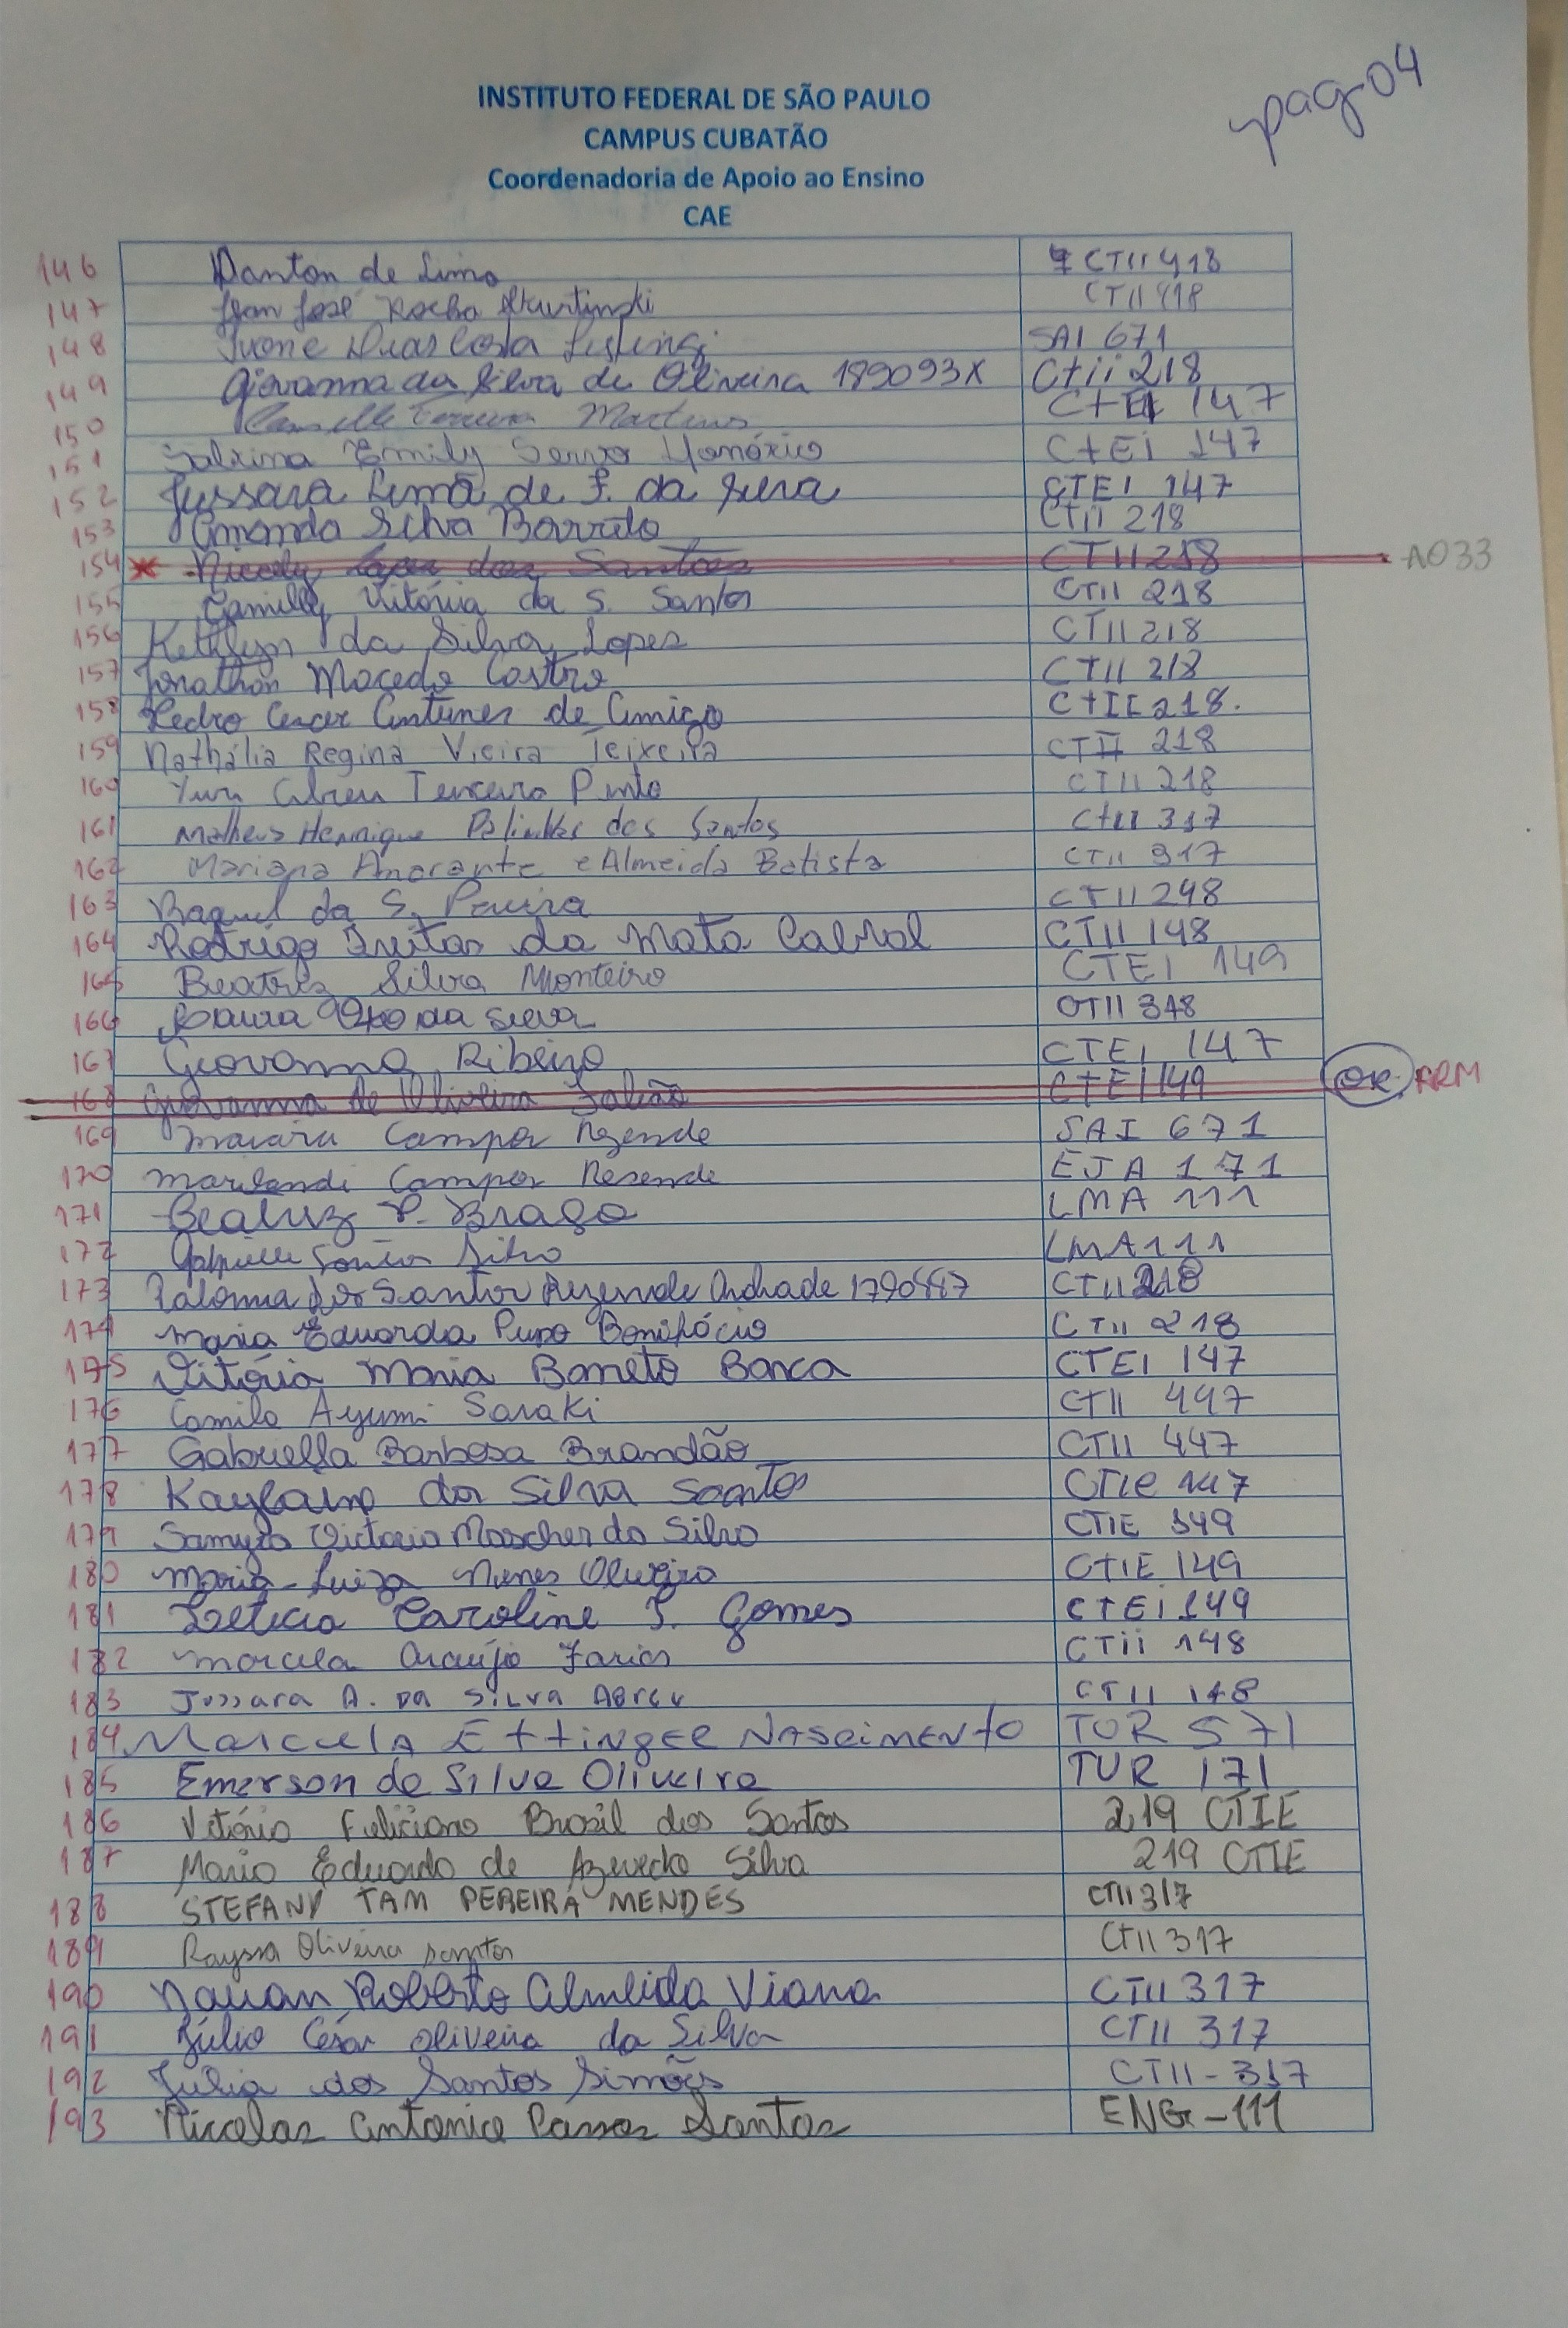 pag 04
INSTITUTO FEDERAL DE SÃO PAULO
CAMPUS CUBATÃO
Coordenadoria de Apoio ao Ensino
CAE
146 Danton de Lima CTII 418
147 Jean José Rocha CTII 418
148 Ivone Dias Costa SAI 671
149 Giovanna da Silva de Oliveira 189093X Ctii 218
150 Camille Ferreira Martins 147
151 Sabrina Emily Servo Honório C+Ei 147
152 Jussara Lima de F. da CTEI 147
153 Amanda Silva Barreto CTII 218
154 Nicoly Lopes dos Santos CTII 218 A033
155 Camilly Vitória da S. Santos CTII 218
156 Kethlyn da Silva Lopes CTII 218
157 Jonathan Macedo Castro CTII 218
158 Pedro Cesar Antunes de Amigo C+II 218.
159 Nathália Regina Vieira Teixeira CTII 218
160 Yuri Abreu Terceiro Pinto CTII 218
161 Matheus Henrique dos Santos CtII 317
162 Mariana Amarante e Almeida Batista CTII 317
163 Raquel da S. Pereira CTII 248
164 Rodrigo Freitas da Mata Cabral CTII 148
165 Beatriz Silva Monteiro CTEI 149
166 da Silva CTII 348
167 Geovanna Ribeiro CTEI 147
168 Giovanna de Oliveira Falcão CTEI 149 OK ARM
169 Maiara Campos Rezende SAI 671
170 Campos Resende EJA 171
171 Beatriz P. Braga LMA 111
172 Gabrielle Souza Silva LMA 111
173 Paloma dos Santos Rezende Andrade CTII 218
174 Maria Eduarda Pupo Bonifácio CTII 218
175 Vitória Maria Barreto Barca CTEI 147
176 Camila Ayumi Saraki CTII 447
177 Gabriella Barbosa Brandão CTII 447
178 da Silva Santos CTIE 147
179 Samyra Victoria Mascher da Silva CTIE 349
180 Maria Luiza Nunes Oliveira CTIE 149
181 Leticia Caroline S. Gomes CTEi 149
182 Marcela Araújo Farias CTii 148
183 Jussara A. da Silva Abreu CTII 148
184 Marcela Ettinger Nascimento TUR 571
185 Emerson da Silva Oliveira TUR 171
186 Vitória Feliciano Brasil dos Santos 219 CTIE
187 Maria Eduarda de Azevedo Silva 219 CTIE
188 STEFANY TAM PEREIRA MENDES CTII 317
189 Rayssa Oliveira Santos CTII 317
190 Nauan Roberto Almeida Viana CTII 317
191 Júlio César Oliveira da Silva CTII 317
192 Júlia dos Santos Simões CTII-317
193 Nicolas Antonio Passos Santos ENG-111